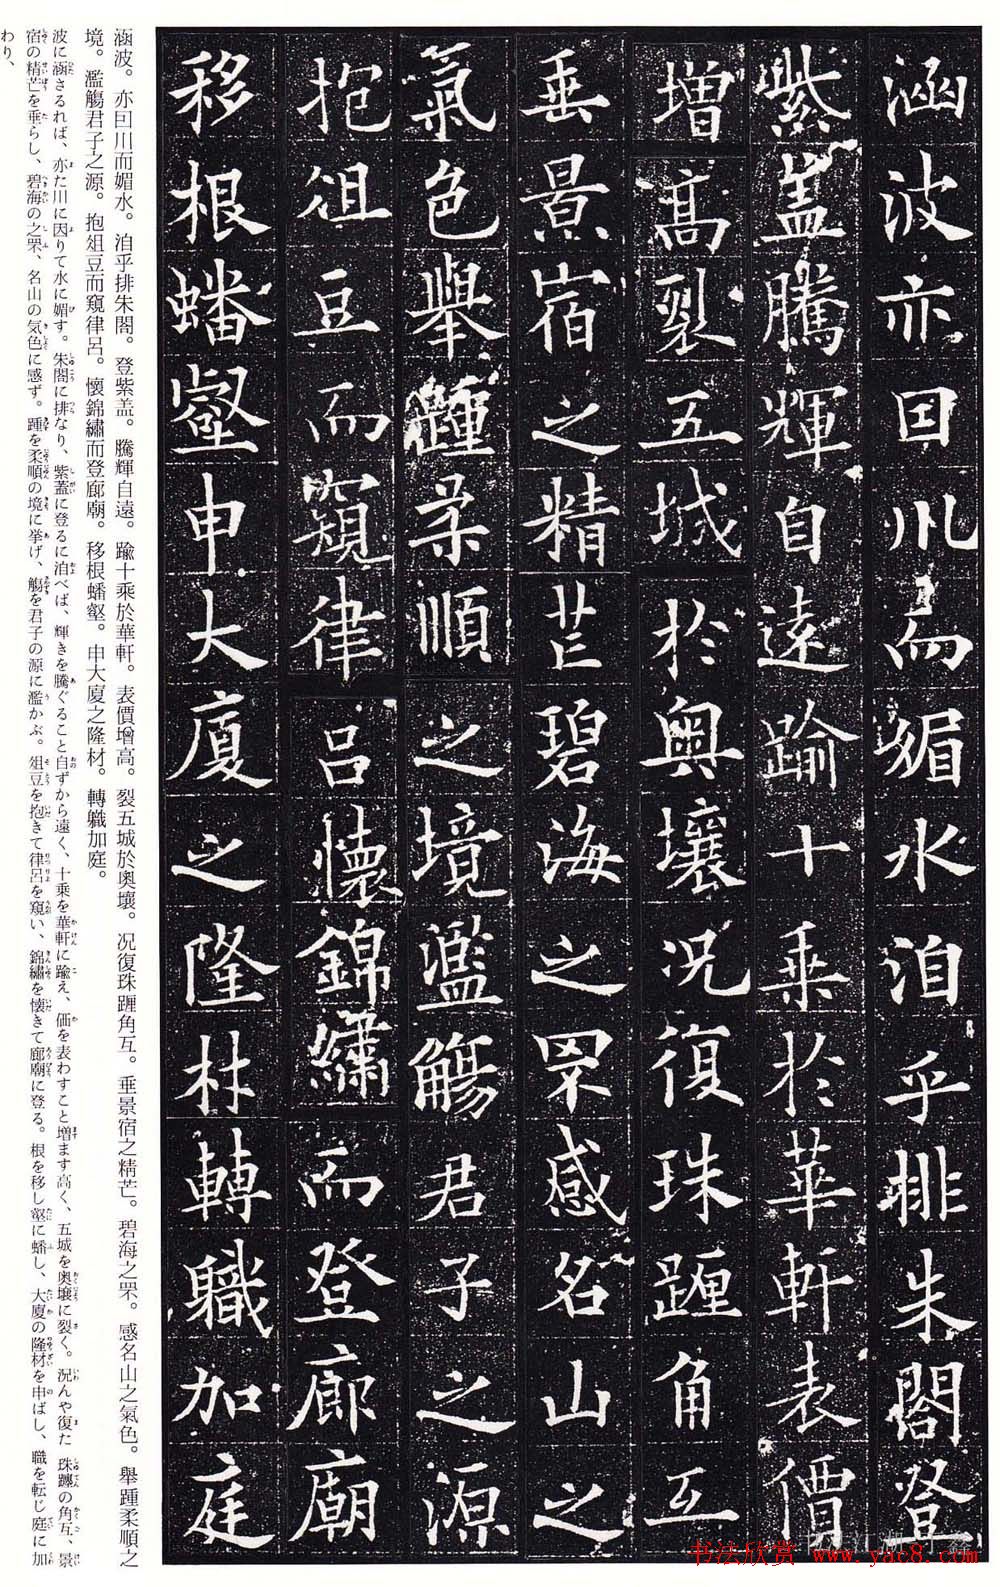 涵波亦因川而媚水洎乎排朱閣登
紫盖騰輝自遠踰十乘於華軒表價
增高裂五城於奥壤况復珠躔角互
垂景宿之精芒碧海之罘感名山之
氣色舉踵柔順之境濫觴君子之源
抱俎豆而窺律呂懷錦繡而登廊廟
移根蟠壑申大廈之隆材轉職加庭
涵波。亦曰川而媚水。洎乎排朱閣。登紫盖。騰輝自遠。踰十乘於華軒。表價增高。裂五城於奥壤。况復珠躔角互。垂景宿之精芒。碧海之罘。感名山之氣色。舉踵柔順之
境。濫觴君子之源。抱俎豆而窺律呂。懷錦繡而登廊廟。移根蟠壑。申大廈之隆材。轉職加庭。
波に涵さるれば、亦た川に因りて水に媚す。朱閣に排なり、紫蓋に登るに洎べば、輝きを騰ぐること自ずから遠く、十乗を華軒に踰え、価を表わすこと増ます高く、五城を奥壌に裂く。況んや復た珠躔の角互、景
宿の精芒を垂らし、碧海の之罘、名山の気色に感ず。踵を柔順の境に挙げ、觴を君子の源に濫かぶ。俎豆を抱きて律呂を窺い、錦繡を懐きて廊廟に登る。根を移し壑に蟠し、大廈の隆材を申ばし、職を転じ庭に加
わり、
书法欣赏 www.yac8.com